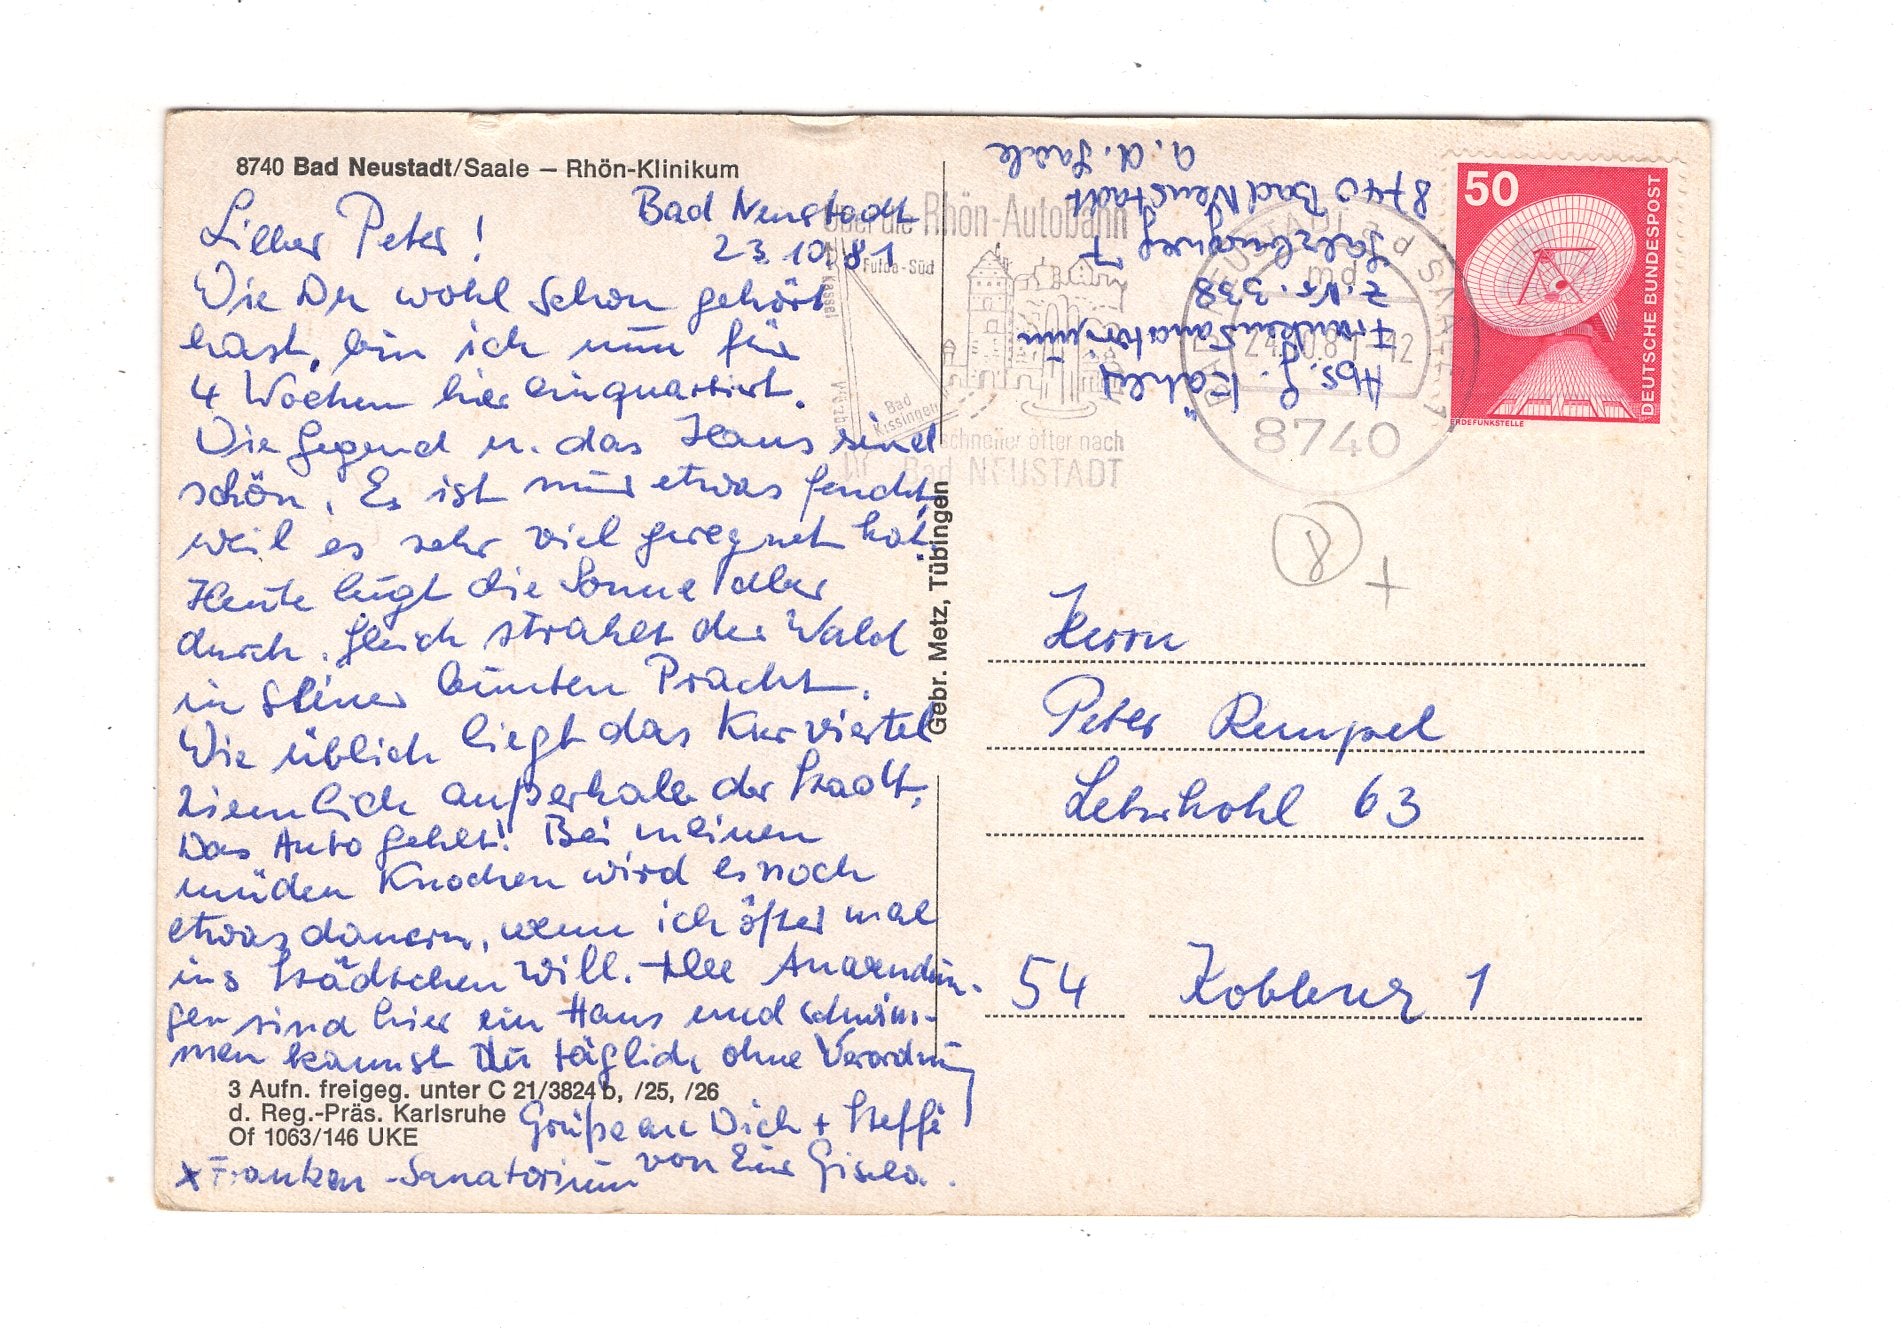 8740 Bad Neustadt/Saale – Rhön-Klinikum
Bad Neustadt
23.10.81
Lieber Peter!
Wie Du wohl schon gehört
hast, bin ich nun für
4 Wochen hier einquartiert.
Die Gegend u. das Haus sind
schön. Es ist nur etwas feucht,
weil es sehr viel geregnet hat.
Heute lugt die Sonne aber
durch. Gleich strahlt der Wald
in seiner bunten Pracht.
Wie üblich liegt das Kurviertel
ziemlich außerhalb der Stadt.
Das Auto fehlt! Bei meinen
müden Knochen wird es noch
etwas dauern, wenn ich öfter mal
ins Städtchen will. Alle Anwendun-
gen sind hier im Haus und schwim-
men kannst Du täglich, ohne Verordnung
3 Aufn. freigeg. unter C 21/3824 b, /25, /26
d. Reg.-Präs. Karlsruhe
Of 1063/146 UKE
Grüße an Dich + Steffi
von Eur Gisela.
x Franken-Sanatorium
Gebr. Metz, Tübingen
Über die Rhön-Autobahn
Fulda-Süd
Kassel
Bad
Kissingen
schneller öfter nach
Bad NEUSTADT
Abs. G. Kähler
Frankensanatorium
Z.Nr. 338
Salzburgweg 7
8740 Bad Neustadt
a. d. Saale
BAD NEUSTADT a d SAALE 1
md
24.10.81-12
8740
50
DEUTSCHE BUNDESPOST
ERDEFUNKSTELLE
8
+
Herrn
Peter Rempel
63
54 Koblenz 1